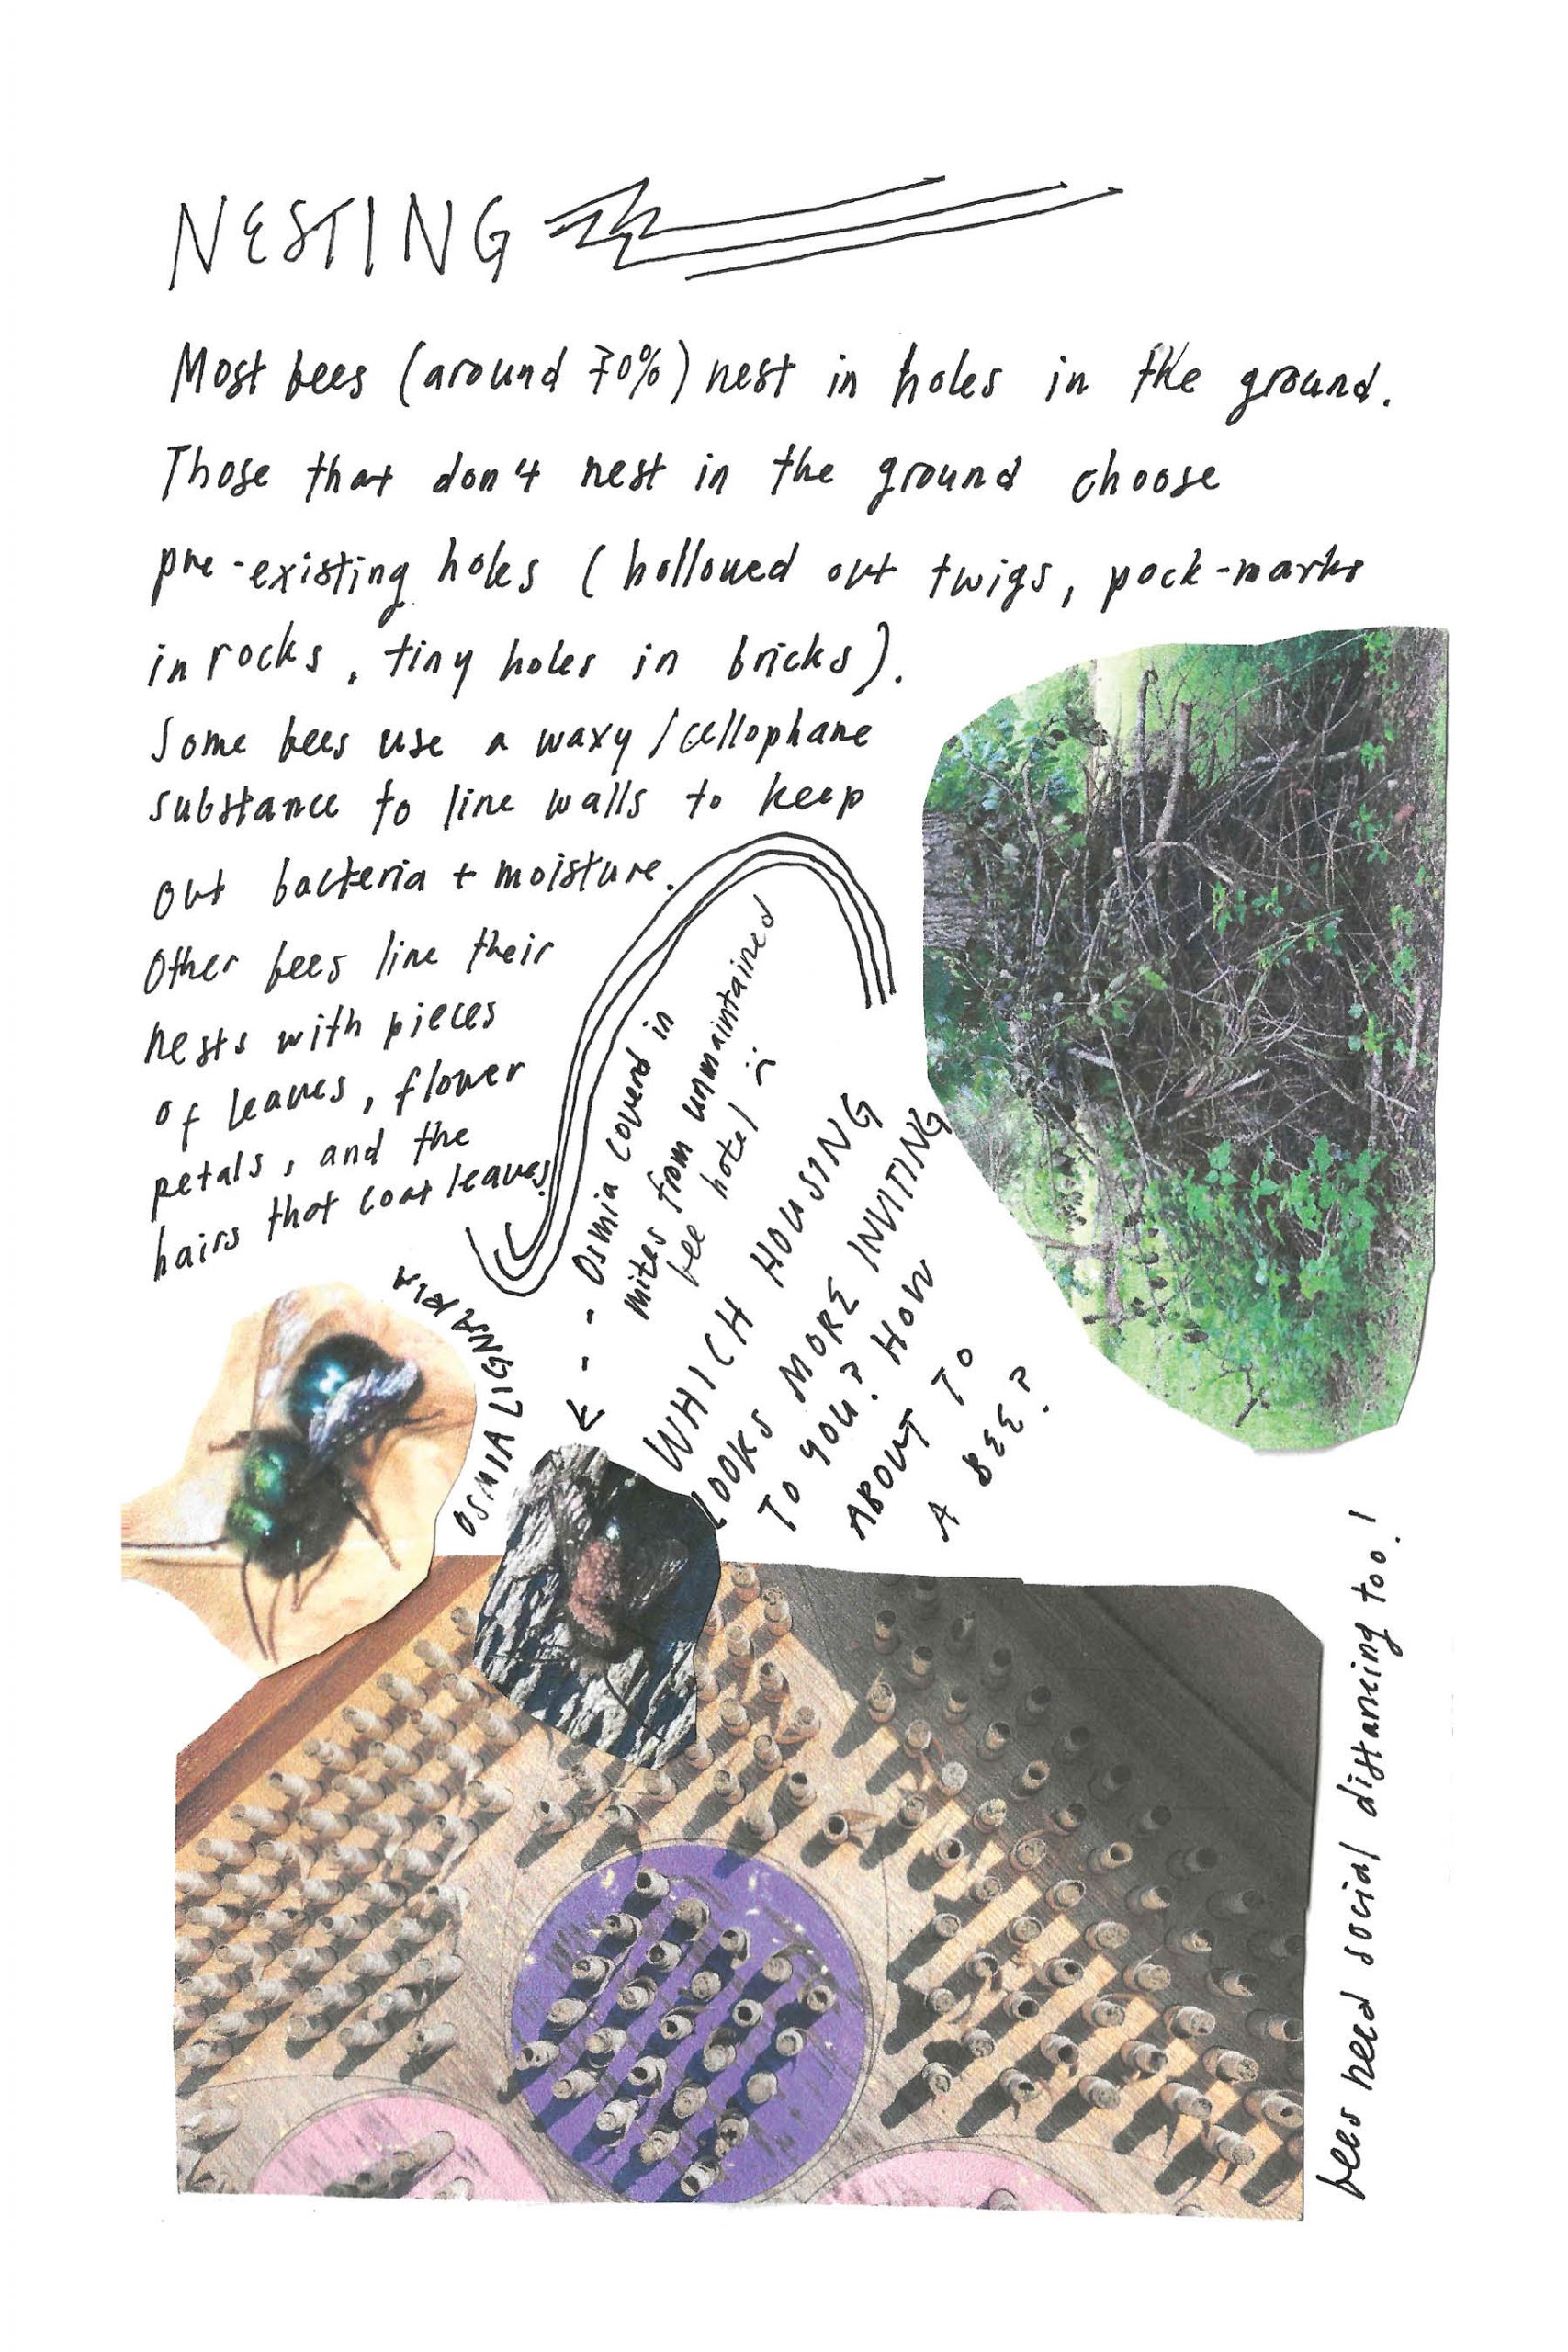 NESTING
Most bees (around 70%) nest in holes in the ground.
Those that don't nest in the ground choose
pre-existing holes (hollowed out twigs, pock-marks
in rocks, tiny holes in bricks).
Some bees use a waxy/cellophane
substance to line walls to keep
out bacteria + moisture.
Other bees line their
nests with pieces
of leaves, flower
petals, and the
hairs that coat leaves.
OSMIA LIGNARIA
Osmia covered in
mites from unmaintained
bee hotel :(
WHICH HOUSING
LOOKS MORE INVITING
TO YOU? HOW
ABOUT TO
A BEE?
bees need social distancing too!